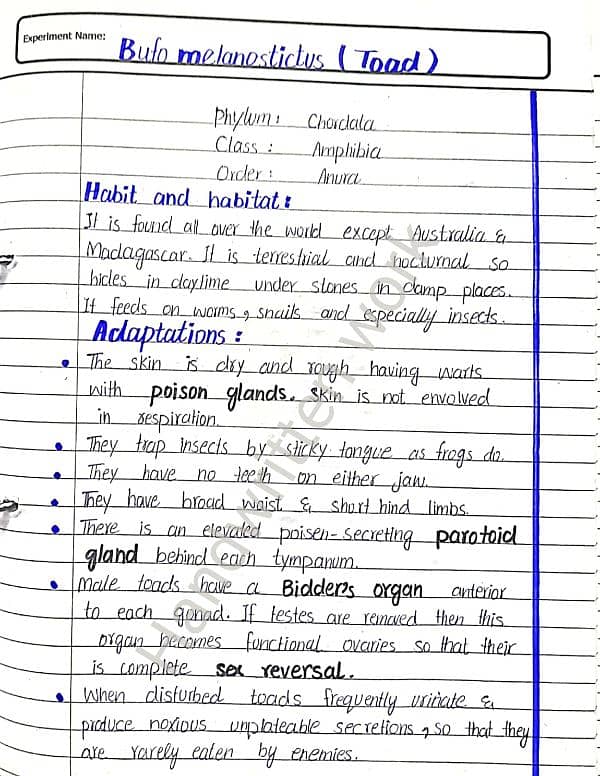 Experiment Name:
Bufo melanostictus (Toad)
Phylum: Chordata
Class: Amphibia
Order: Anura
Habit and habitat:
It is found all over the world except Australia &
Madagascar. It is terrestrial and nocturnal so
hides in daytime under stones in damp places.
It feeds on worms, snails and especially insects.
Adaptations:
• The skin is dry and rough having warts
with poison glands. Skin is not envolved
in respiration.
• They trap insects by sticky tongue as frogs do.
• They have no teeth on either jaw.
• They have broad waist & short hind limbs.
• There is an elevated poisen-secreting parotoid
gland behind each tympanum.
• Male toads have a Bidder's organ anterior
to each gonad. If testes are removed then this
organ becomes functional ovaries so that their
is complete sex reversal.
• When disturbed toads frequently urinate &
produce noxious unplateable secretions, so that they
are rarely eaten by enemies.
Handwritten work